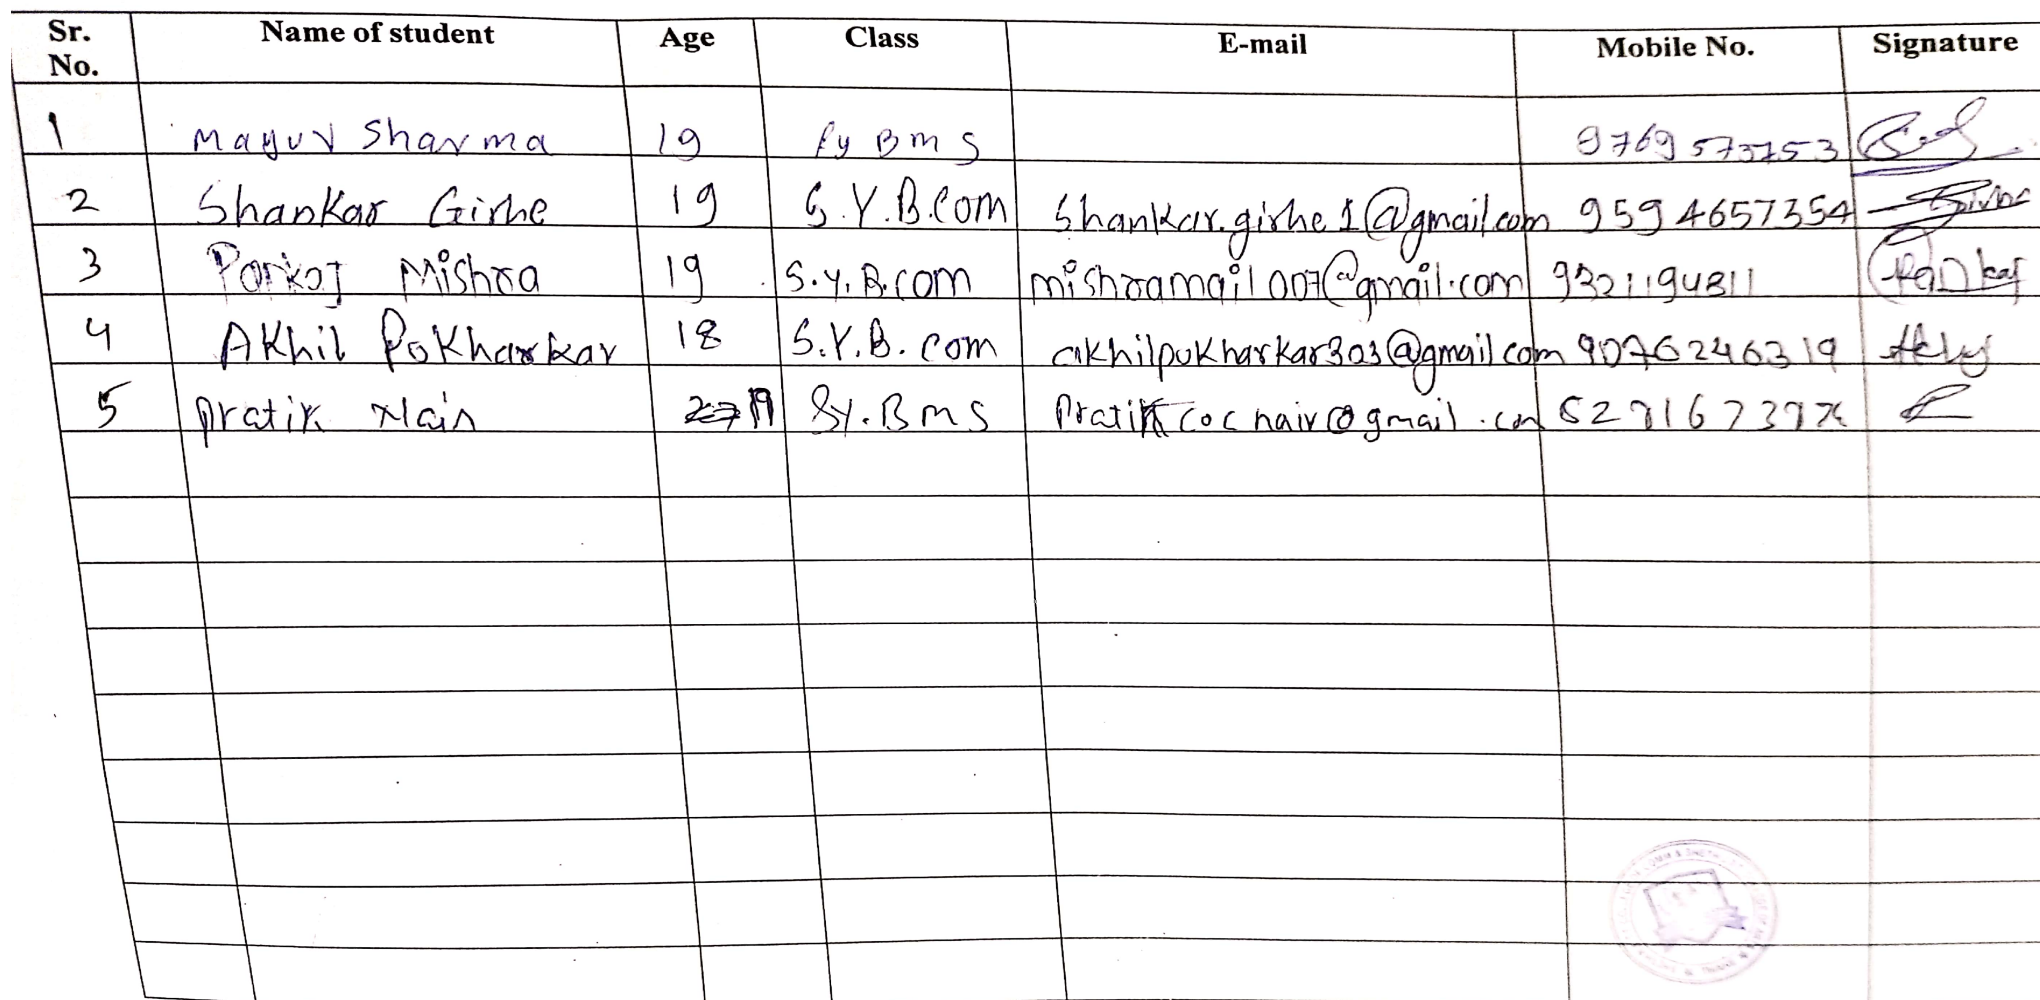 Sr. No. Name of student Age Class E-mail Mobile No. Signature
1 Mayur Sharma 19 Fy Bms 9769573753
2 Shankar Girhe 19 S.Y.B.Com Shankar.girhe1@gmail.com 9594657354
3 Pankaj Mishra 19 S.Y.B.com mishramail007@gmail.com 9321194811 Pankaj
4 Akhil Pokharkar 18 S.Y.B.com akhilpokharkar303@gmail.com 9076246319
5 Pratik 19 Sy.Bms